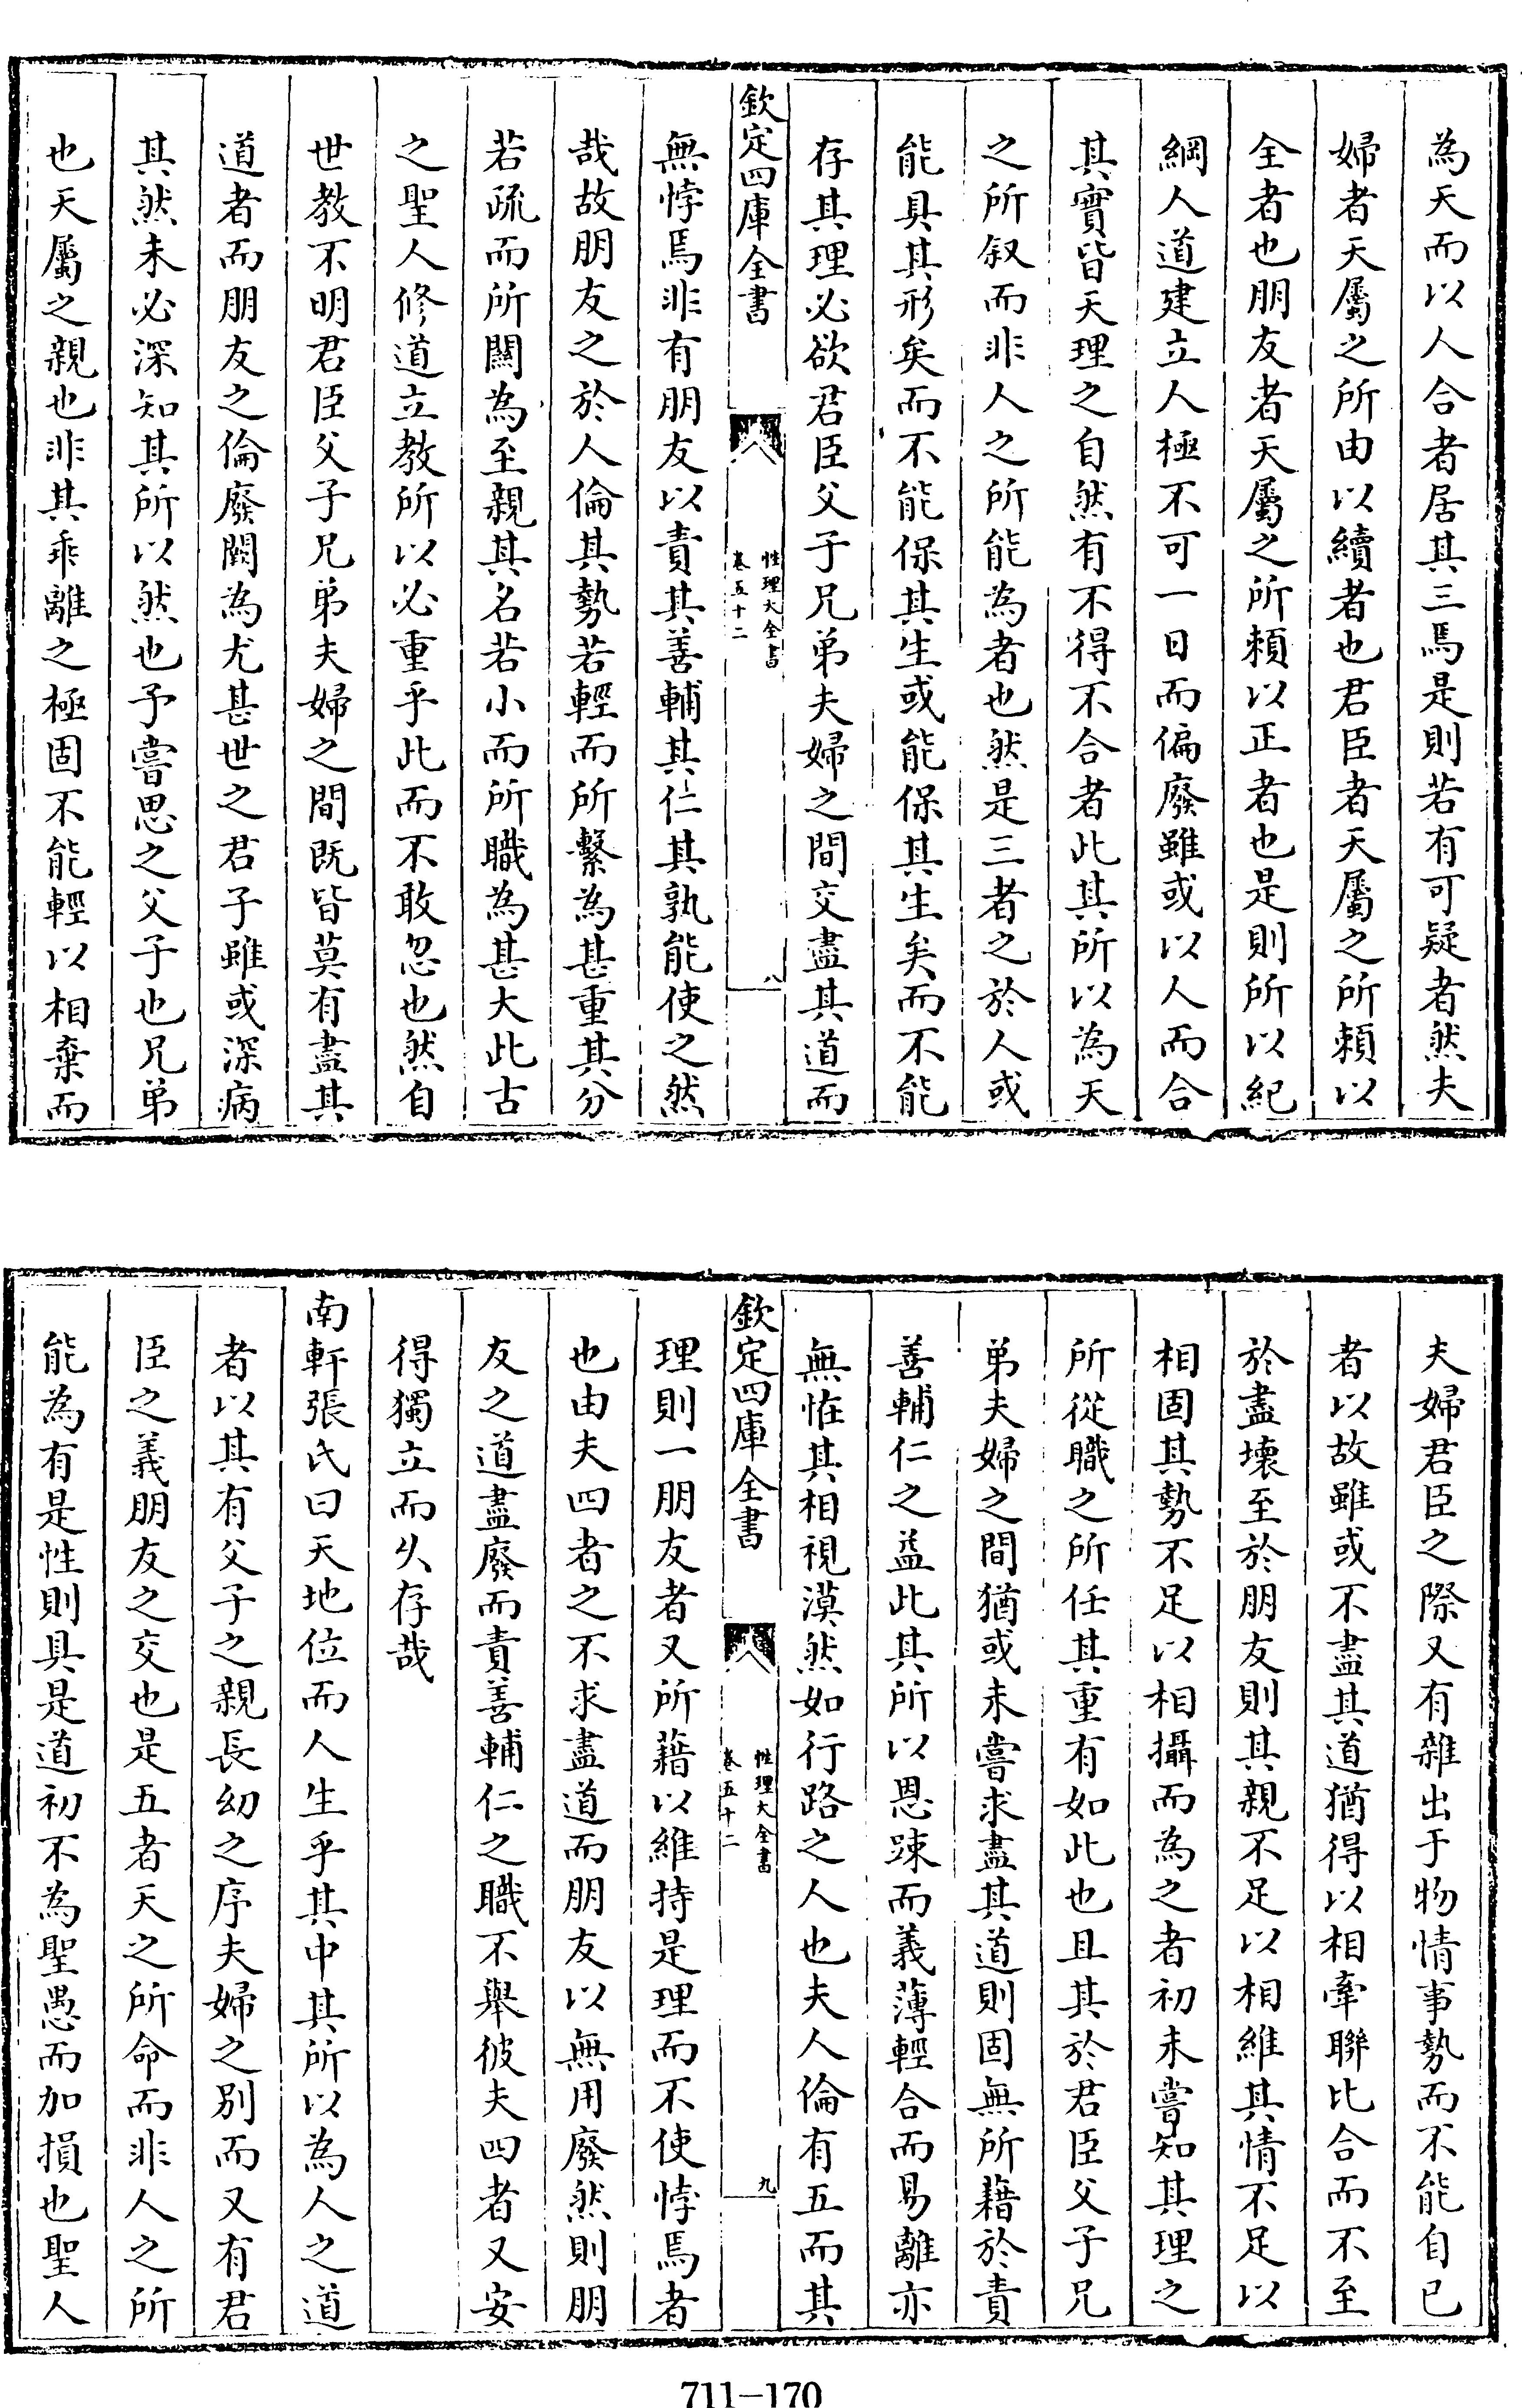 為天而以人合者居其三焉是則若有可疑者然夫
婦者天屬之所由以續者也君臣者天屬之所賴以
全者也朋友者天屬之所賴以正者也是則所以紀
綱人道建立人極不可一日而偏廢雖或以人而合
其實皆天理之自然有不得不合者此其所以為天
之所叙而非人之所能為者也然是三者之於人或
能具其形矣而不能保其生或能保其生矣而不能
存其理必欲君臣父子兄弟夫婦之間交盡其道而
欽定四庫全書
性理大全書
卷五十二
八
無悖焉非有朋友以責其善輔其仁其孰能使之然
哉故朋友之於人倫其勢若輕而所繫為甚重其分
若疏而所關為至親其名若小而所職為甚大此古
之聖人修道立教所以必重乎此而不敢忽也然自
世教不明君臣父子兄弟夫婦之間既皆莫有盡其
道者而朋友之倫廢闕為尤甚世之君子雖或深病
其然未必深知其所以然也予嘗思之父子也兄弟
也天屬之親也非其乖離之極固不能輕以相棄而
夫婦君臣之際又有雜出于物情事勢而不能自已
者以故雖或不盡其道猶得以相牽聯比合而不至
於盡壞至於朋友則其親不足以相維其情不足以
相固其勢不足以相攝而為之者初未嘗知其理之
所從職之所任其重有如此也且其於君臣父子兄
弟夫婦之間猶或未嘗求盡其道則固無所藉於責
善輔仁之益此其所以恩踈而義薄輕合而易離亦
無怪其相視漠然如行路之人也夫人倫有五而其
欽定四庫全書
性理大全書
卷五十二
九
理則一朋友者又所藉以維持是理而不使悖焉者
也由夫四者之不求盡道而朋友以無用廢然則朋
友之道盡廢而責善輔仁之職不舉彼夫四者又安
得獨立而久存哉
南軒張氏曰天地位而人生乎其中其所以為人之道
者以其有父子之親長幼之序夫婦之別而又有君
臣之義朋友之交也是五者天之所命而非人之所
能為有是性則具是道初不為聖愚而加損也聖人
711-170